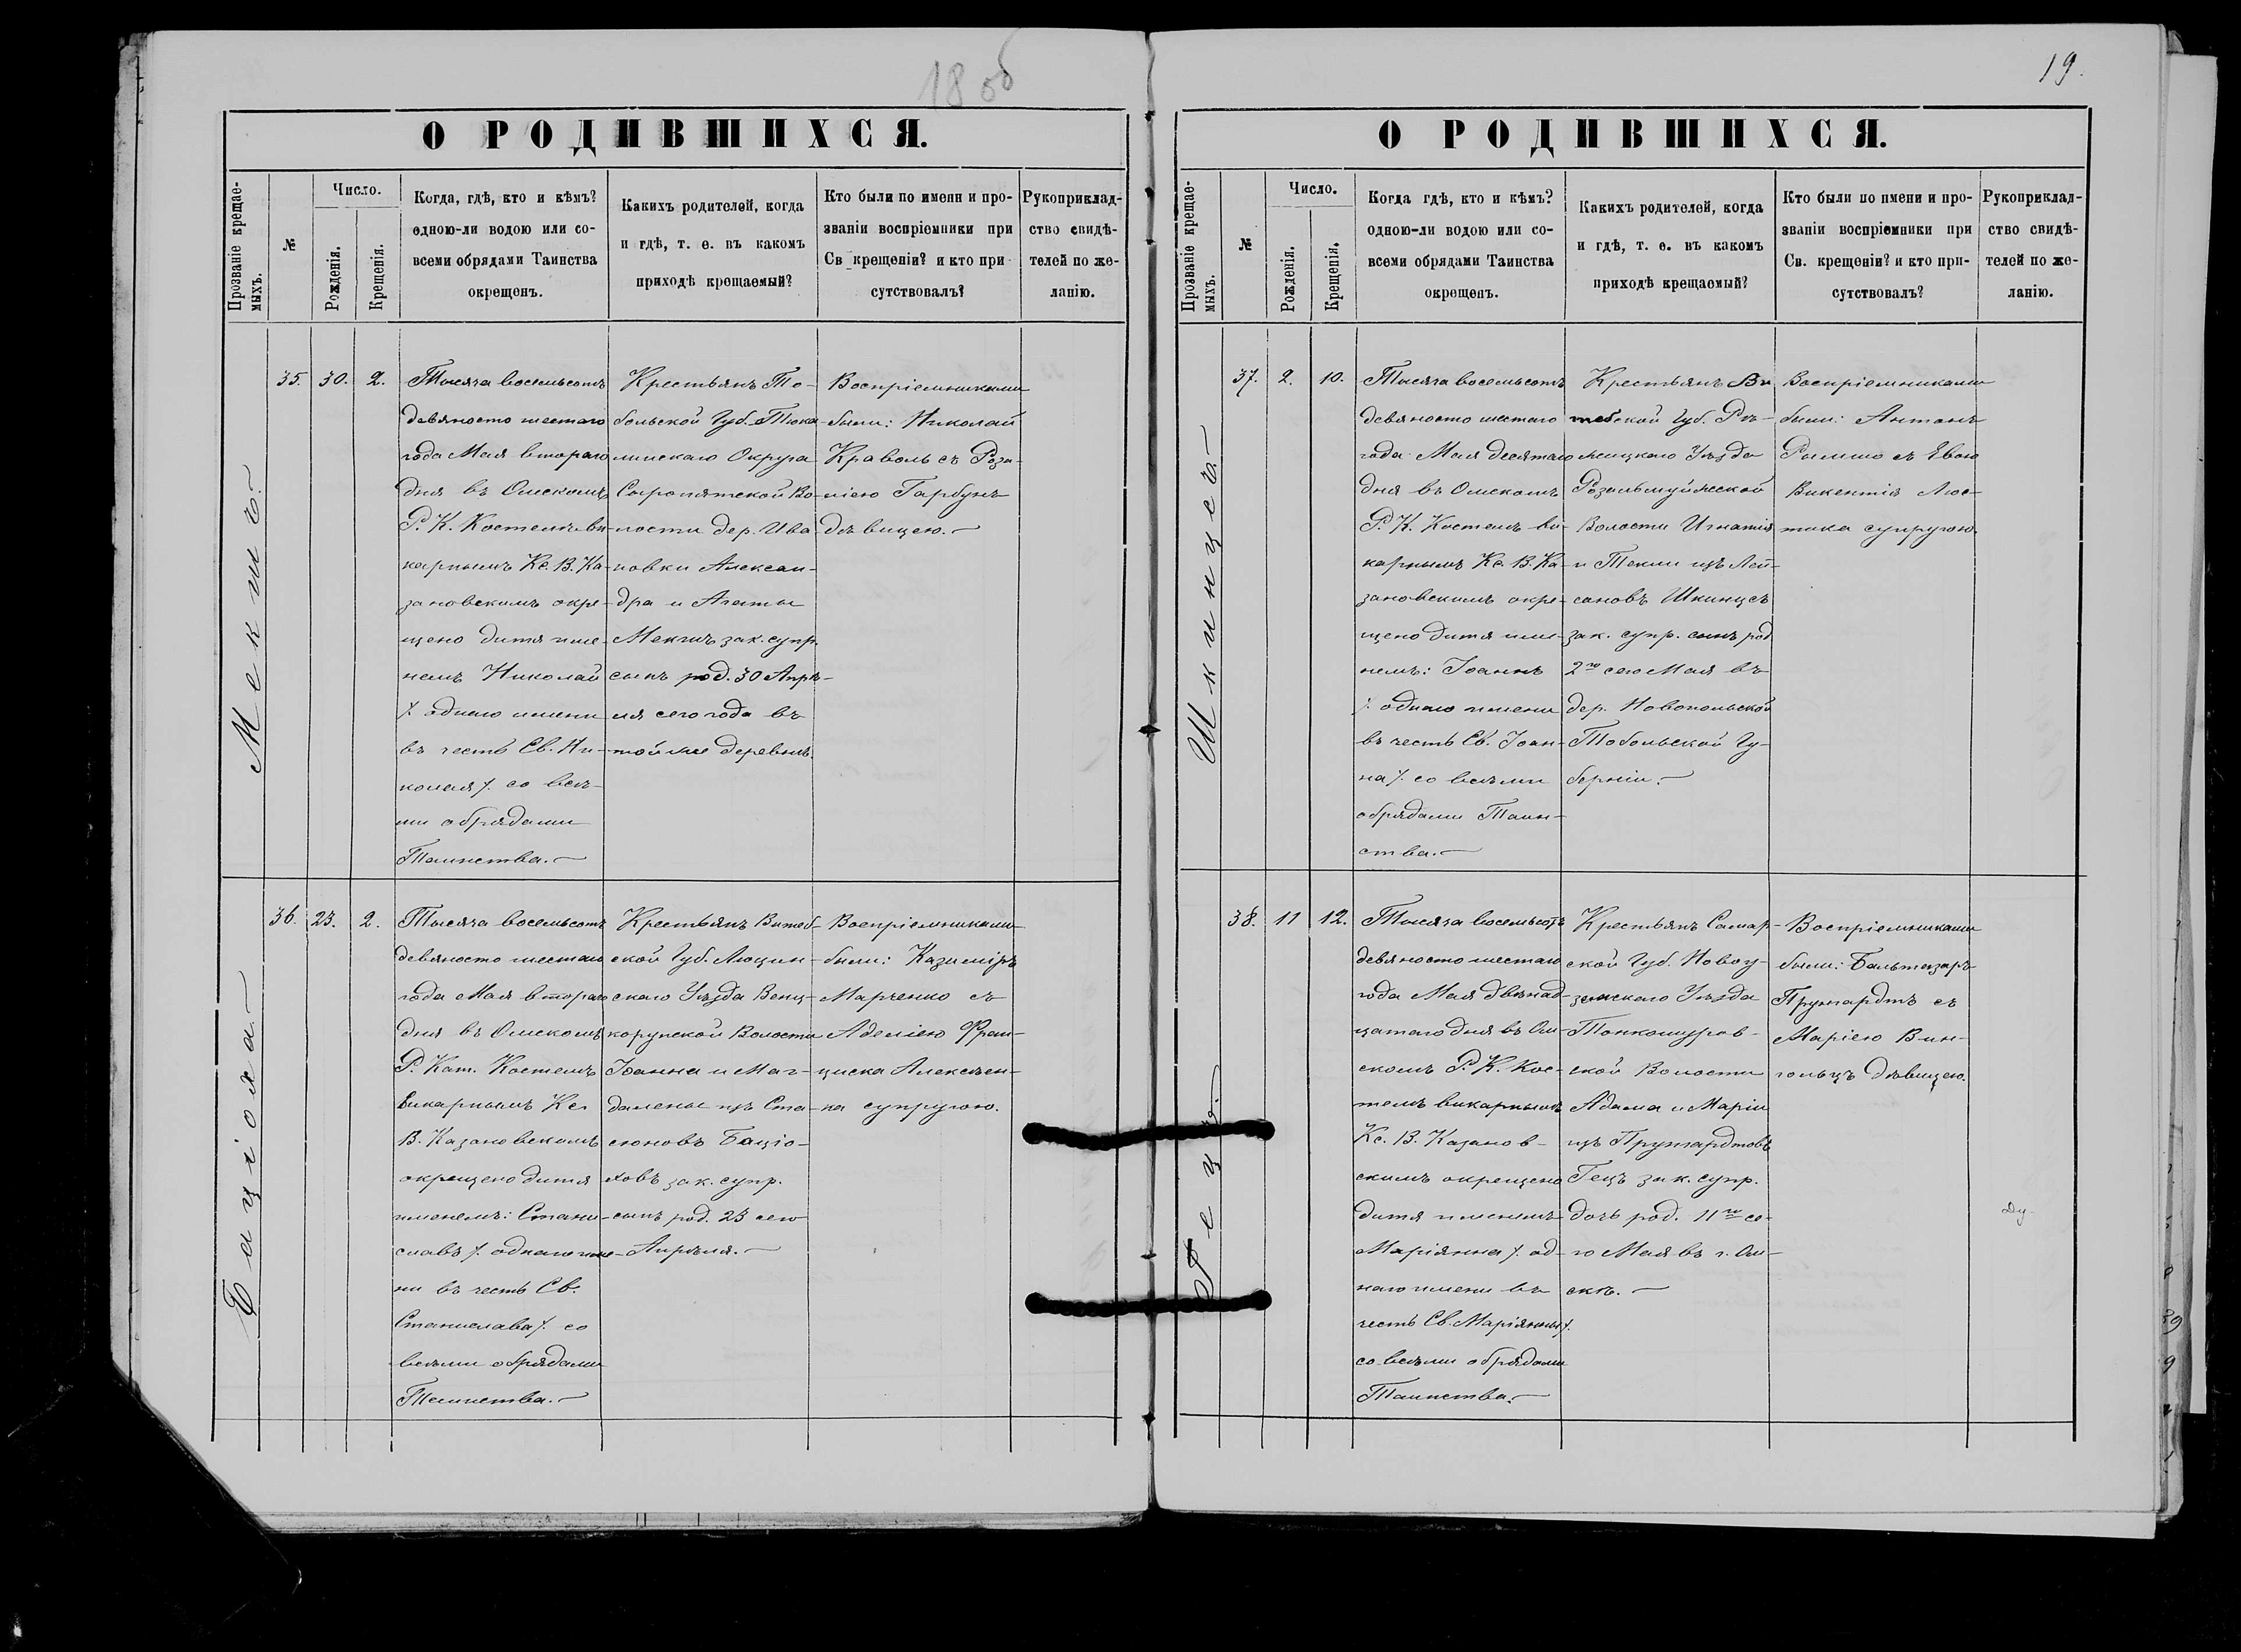 18 об
О РОДИВШИХСЯ.
Прозваніе крещае-
мыхъ.
№
Число.
Рожденія.
Крещенія.
Когда, гдѣ, кто и кѣмъ?
одною-ли водою или со-
всеми обрядами Таинства
окрещенъ.
Какихъ родителей, когда
и гдѣ, т. е. въ какомъ
приходѣ крещаемый?
Кто были по имени и про-
званіи воспріемники при
Св крещеніи? и кто при
сутствовалъ?
Рукоприклад-
ство свидѣ-
телей по же-
ланію.
35. 30. 2.
Тысяча восемьсотъ
девяносто шестаго
года Мая втораго
дня въ Омскомъ
Р. К. Костелѣ ви-
карнымъ Кс. В. Ка-
зановскимъ окре-
щено дитя име-
немъ Николай
/. одного имени
въ честь Св. Ни-
колая /. со всѣ-
ми обрядами
Таинства.
Крестьянъ То-
больской Губ. Тюка-
линскаго Округа
Сыропятской Во-
лости дер. Ива-
новки Алексан-
дра и Агаты
зак. супр.
сынъ род. 30 Апрѣ-
ля сего года въ
той же деревнѣ.
Воспріемниками
были: Николай
Краволь съ Роза-
ліею Гарбунъ
дѣвицею.
36. 23. 2.
Бацюха
Тысяча восемьсотъ
девяносто шестаго
года Мая втораго
дня въ Омскомъ
Р. Кат. Костелѣ
викарнымъ Кс.
В. Казановскимъ
окрещено дитя
именемъ: Стани-
славъ /. одного име-
ни въ честь Св.
Станислава /. со
всѣми обрядами
Таинства.
Крестьянъ Витеб-
ской Губ. Люцин-
скаго Уѣзда
Волости
Іоанна и Маг-
далены изъ Ста-
сюновъ Баціо-
ховъ зак. супр.
сынъ род. 23 сего
Апрѣля.
Воспріемниками
были: Казиміръ
Марченко съ
Аделіею Фран-
циска Алексѣен-
ка супругою.
19.
О РОДИВШИХСЯ.
Прозваніе крещае-
мыхъ.
№
Число.
Рожденія.
Крещенія.
Когда гдѣ, кто и кѣмъ?
одною-ли водою или со-
всеми обрядами Таинства
окрещенъ.
Какихъ родителей, когда
и гдѣ, т. е. въ какомъ
приходѣ крещаемый?
Кто были по имени и про-
званіи воспріемники при
Св. крещеніи? и кто при-
сутствовалъ?
Рукоприклад-
ство свидѣ-
телей по же-
ланію.
37. 2. 10.
Шкинцевъ
Тысяча восемьсотъ
девяносто шестаго
года Мая десятаго
дня въ Омскомъ
Р. К. Костелѣ ви-
карнымъ Кс. В. Ка-
зановскимъ окре-
щено дитя име-
немъ: Іоаннъ
/. одного имени
въ честь Св. Іоан-
на /. со всѣми
обрядами Таин-
ства.
Крестьянъ Ви
тебской Губ. Рѣ-
жицкаго Уѣзда
Розальмуйжской
Волости Игнатія
и Текли изъ Лей-
сановъ Шкинцевъ
зак. супр. сынъ род
2го сего Мая въ
дер. Новопольской
Тобольской Гу-
берніи.
Воспріемниками
были: Антонъ
Рымшо съ Евою
Викентія Люс-
тика супругою.
38. 11 12.
Гецъ.
Тысяча восемьсотъ
девяносто шестаго
года Мая двѣнад-
цатаго дня въ Ом-
скомъ Р. К. Кос-
телѣ викарнымъ
Кс. В. Казанов-
скимъ окрещено
дитя именемъ
Маріянна /. од-
ного имени въ
честь Св. Маріянны /.
со всѣми обрядами
Таинства.
Крестьянъ Самар-
ской Губ. Новоу-
зенскаго Уѣзда
Тонкошуров-
ской Волости
Адама и Маріи
изъ Прумардтовъ
Гецъ зак. супр.
дочь род. 11го се-
го Мая въ г. Ом-
скѣ.
Воспріемниками
были: Бальтазаръ
Прумардтъ съ
Маріею Вин-
гольцъ дѣвицею.